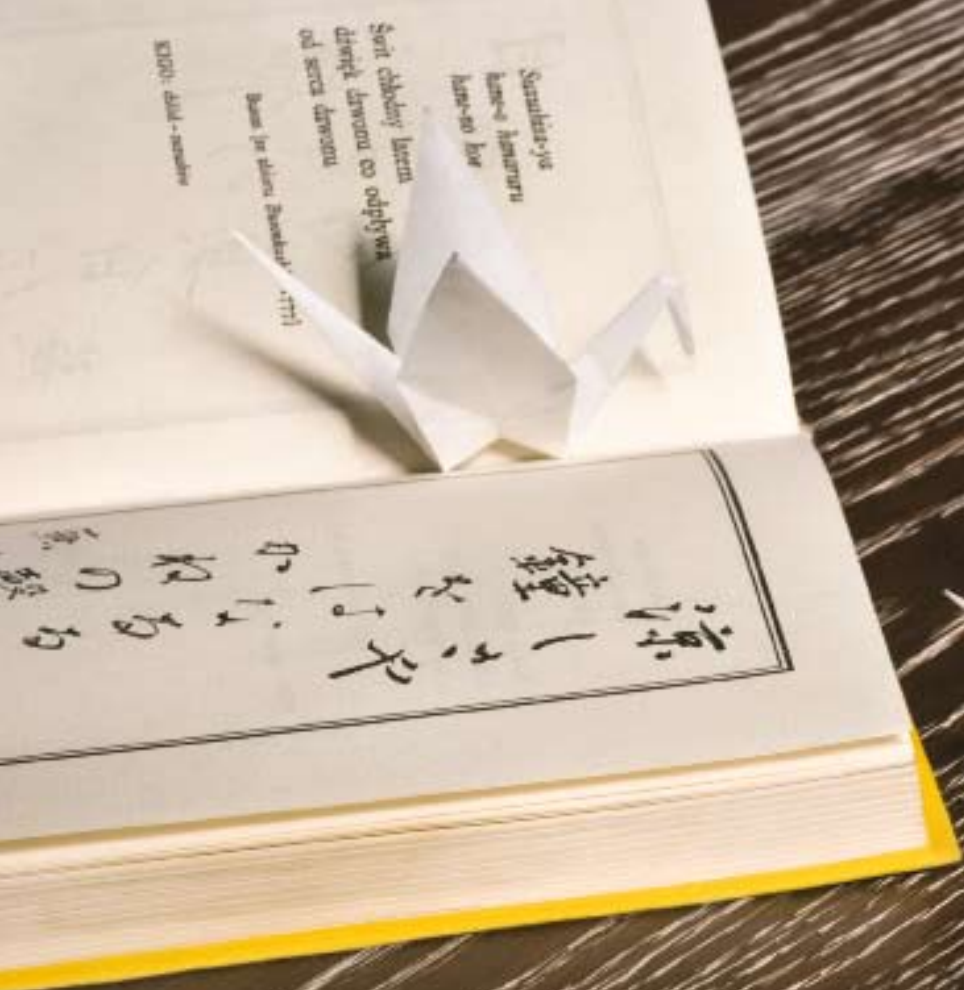 Suzushisa-ya
kane-o hanaruru
kane-no koe
Świt chłodny latem
dźwięk dzwonu co odpływa
od serca dzwonu
Buson [ze zbioru 1777]
KIGO: chłód – suzushisa
涼しさや
鐘をはなるる
かねの聲